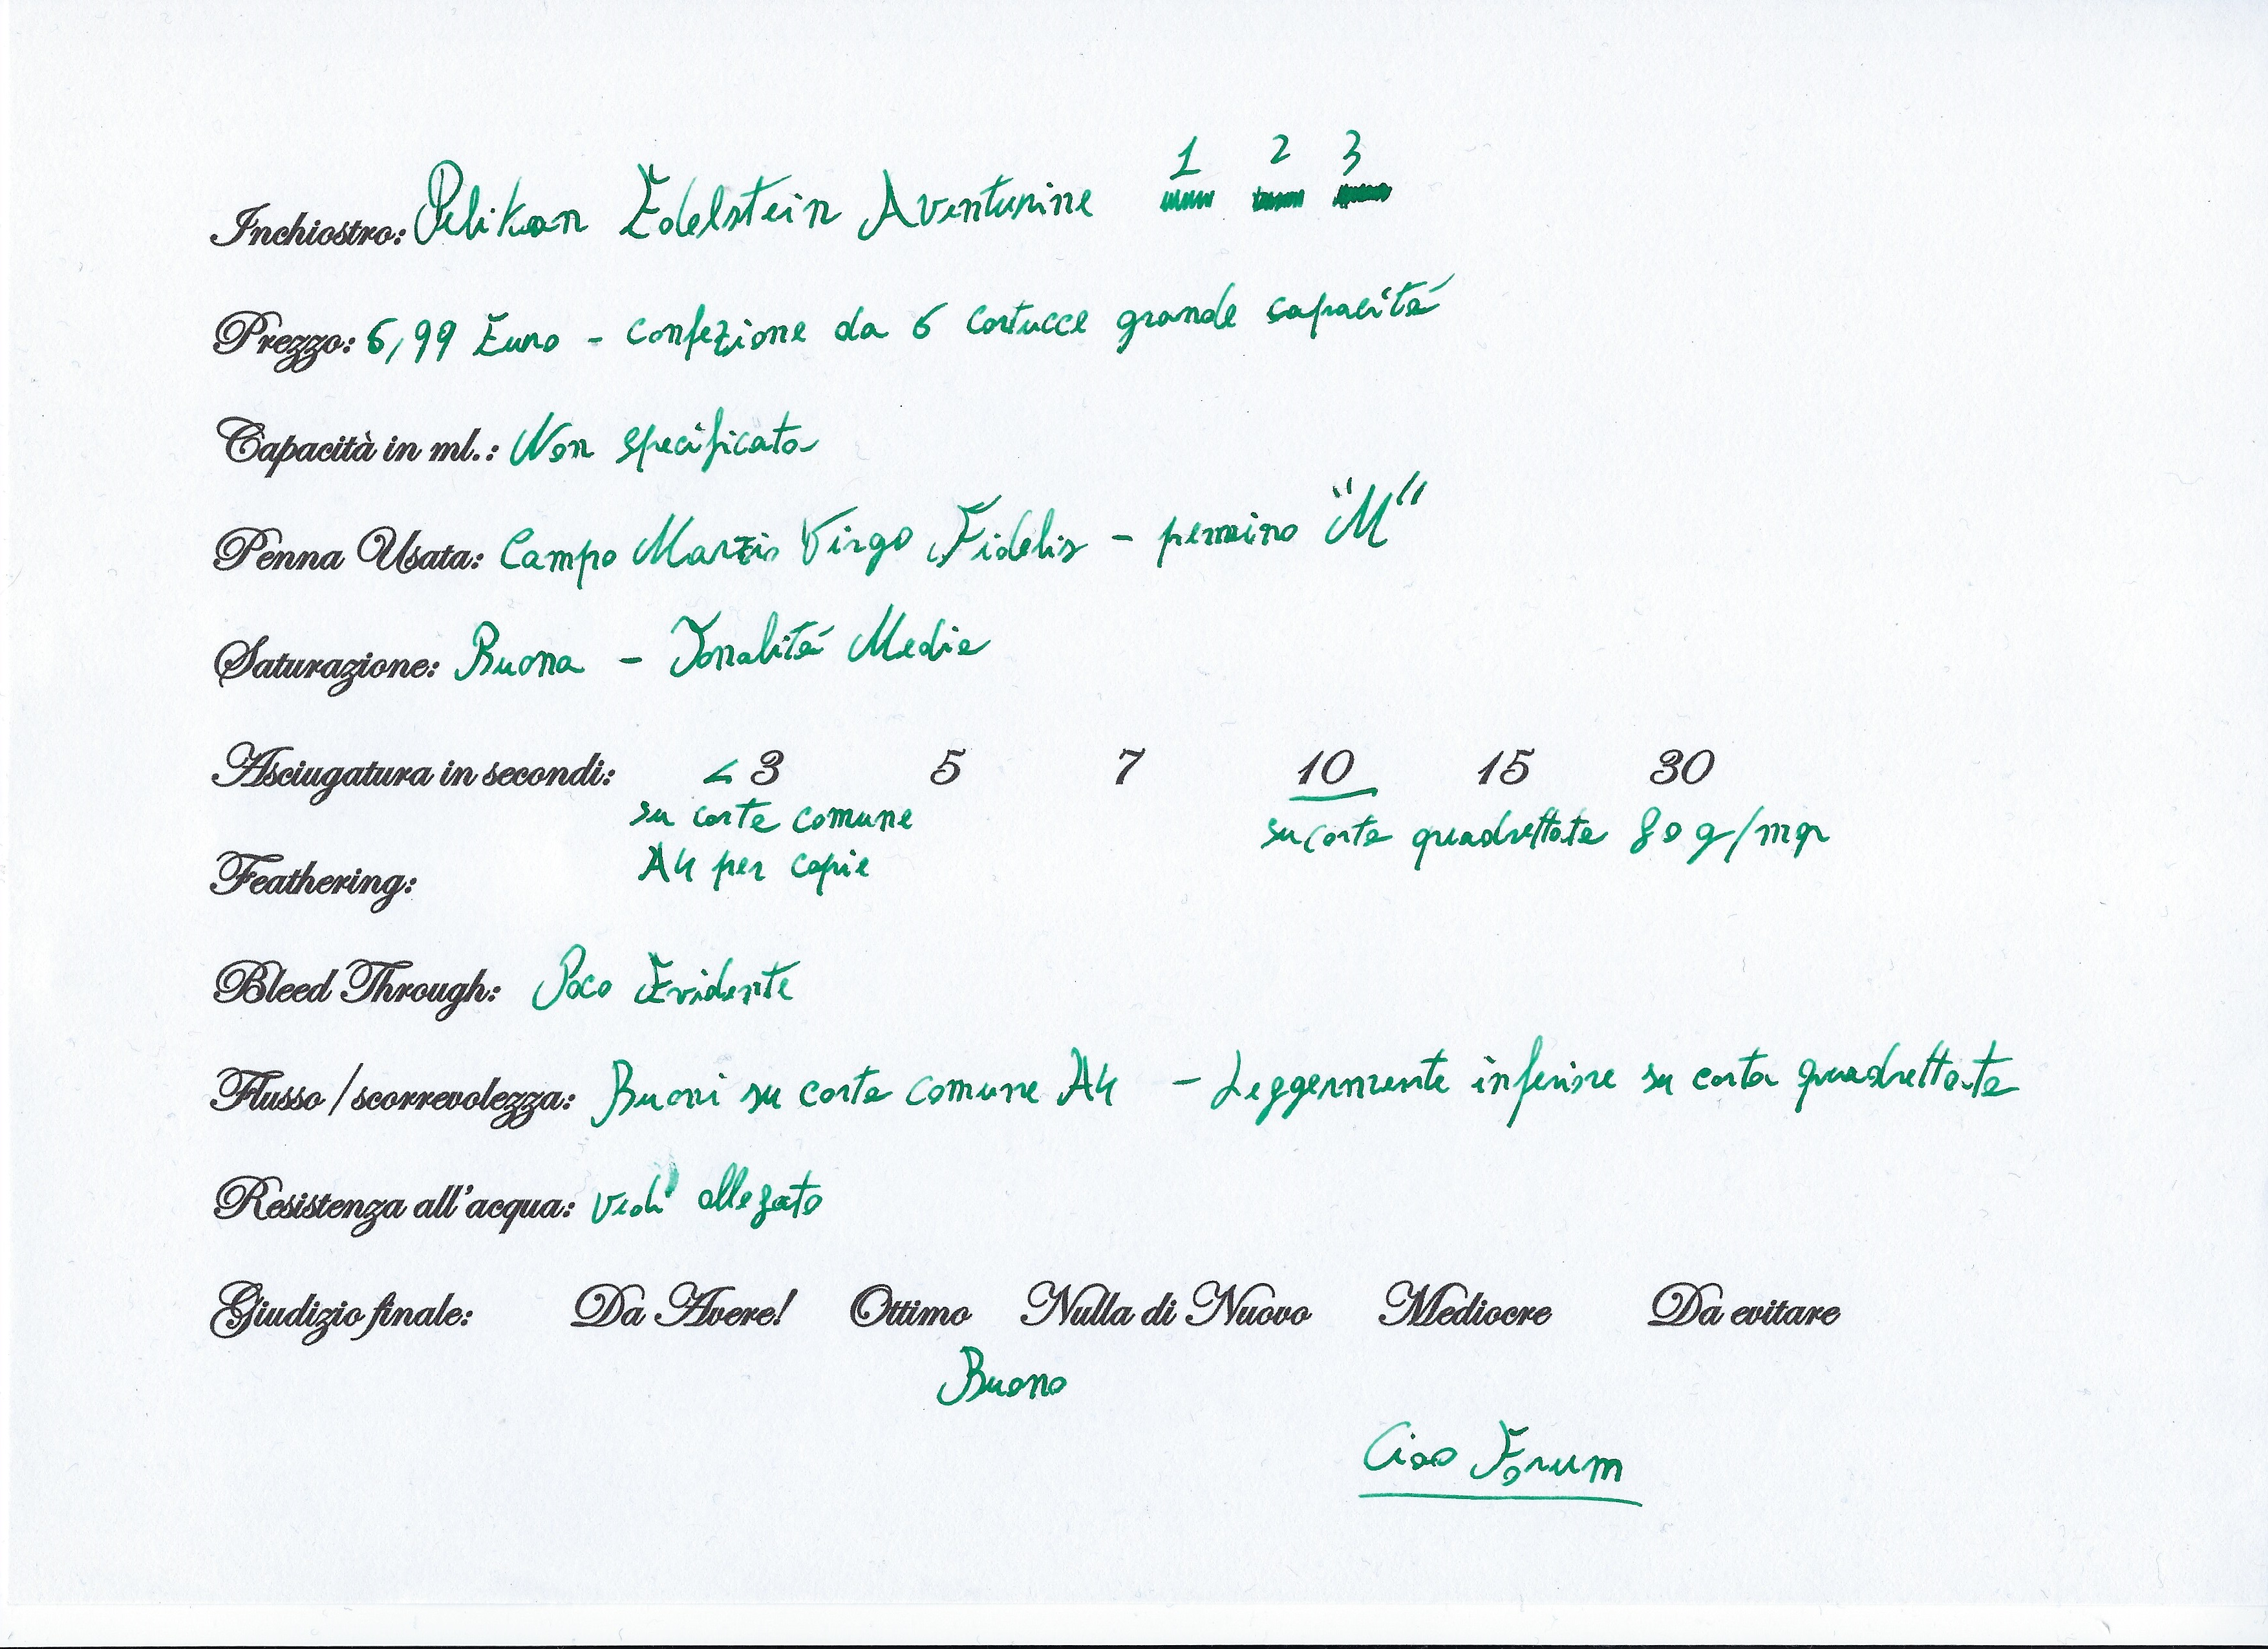 1 2 3
Inchiostro: Pelikan Edelstein Aventurine
Prezzo: 6,99 Euro - confezione da 6 cartucce grande capacitá
Capacità in ml.: Non specificata
Penna Usata: Campo Marzio Virgo Fidelis - pennino "M"
Saturazione: Buona - Tonalitá Media
Asciugatura in secondi: < 3 5 7 10 15 30
su carta comune su carta quadrettata 80 g/mq
A4 per copie
Feathering:
Bleed Through: Poco Evidente
Flusso / scorrevolezza: Buoni su carta comune A4 - Leggermente inferiore su carta quadrettata
Resistenza all'acqua: vedi allegato
Giudizio finale: Da Avere! Ottimo Nulla di Nuovo Mediocre Da evitare
Buono
Ciao Forum